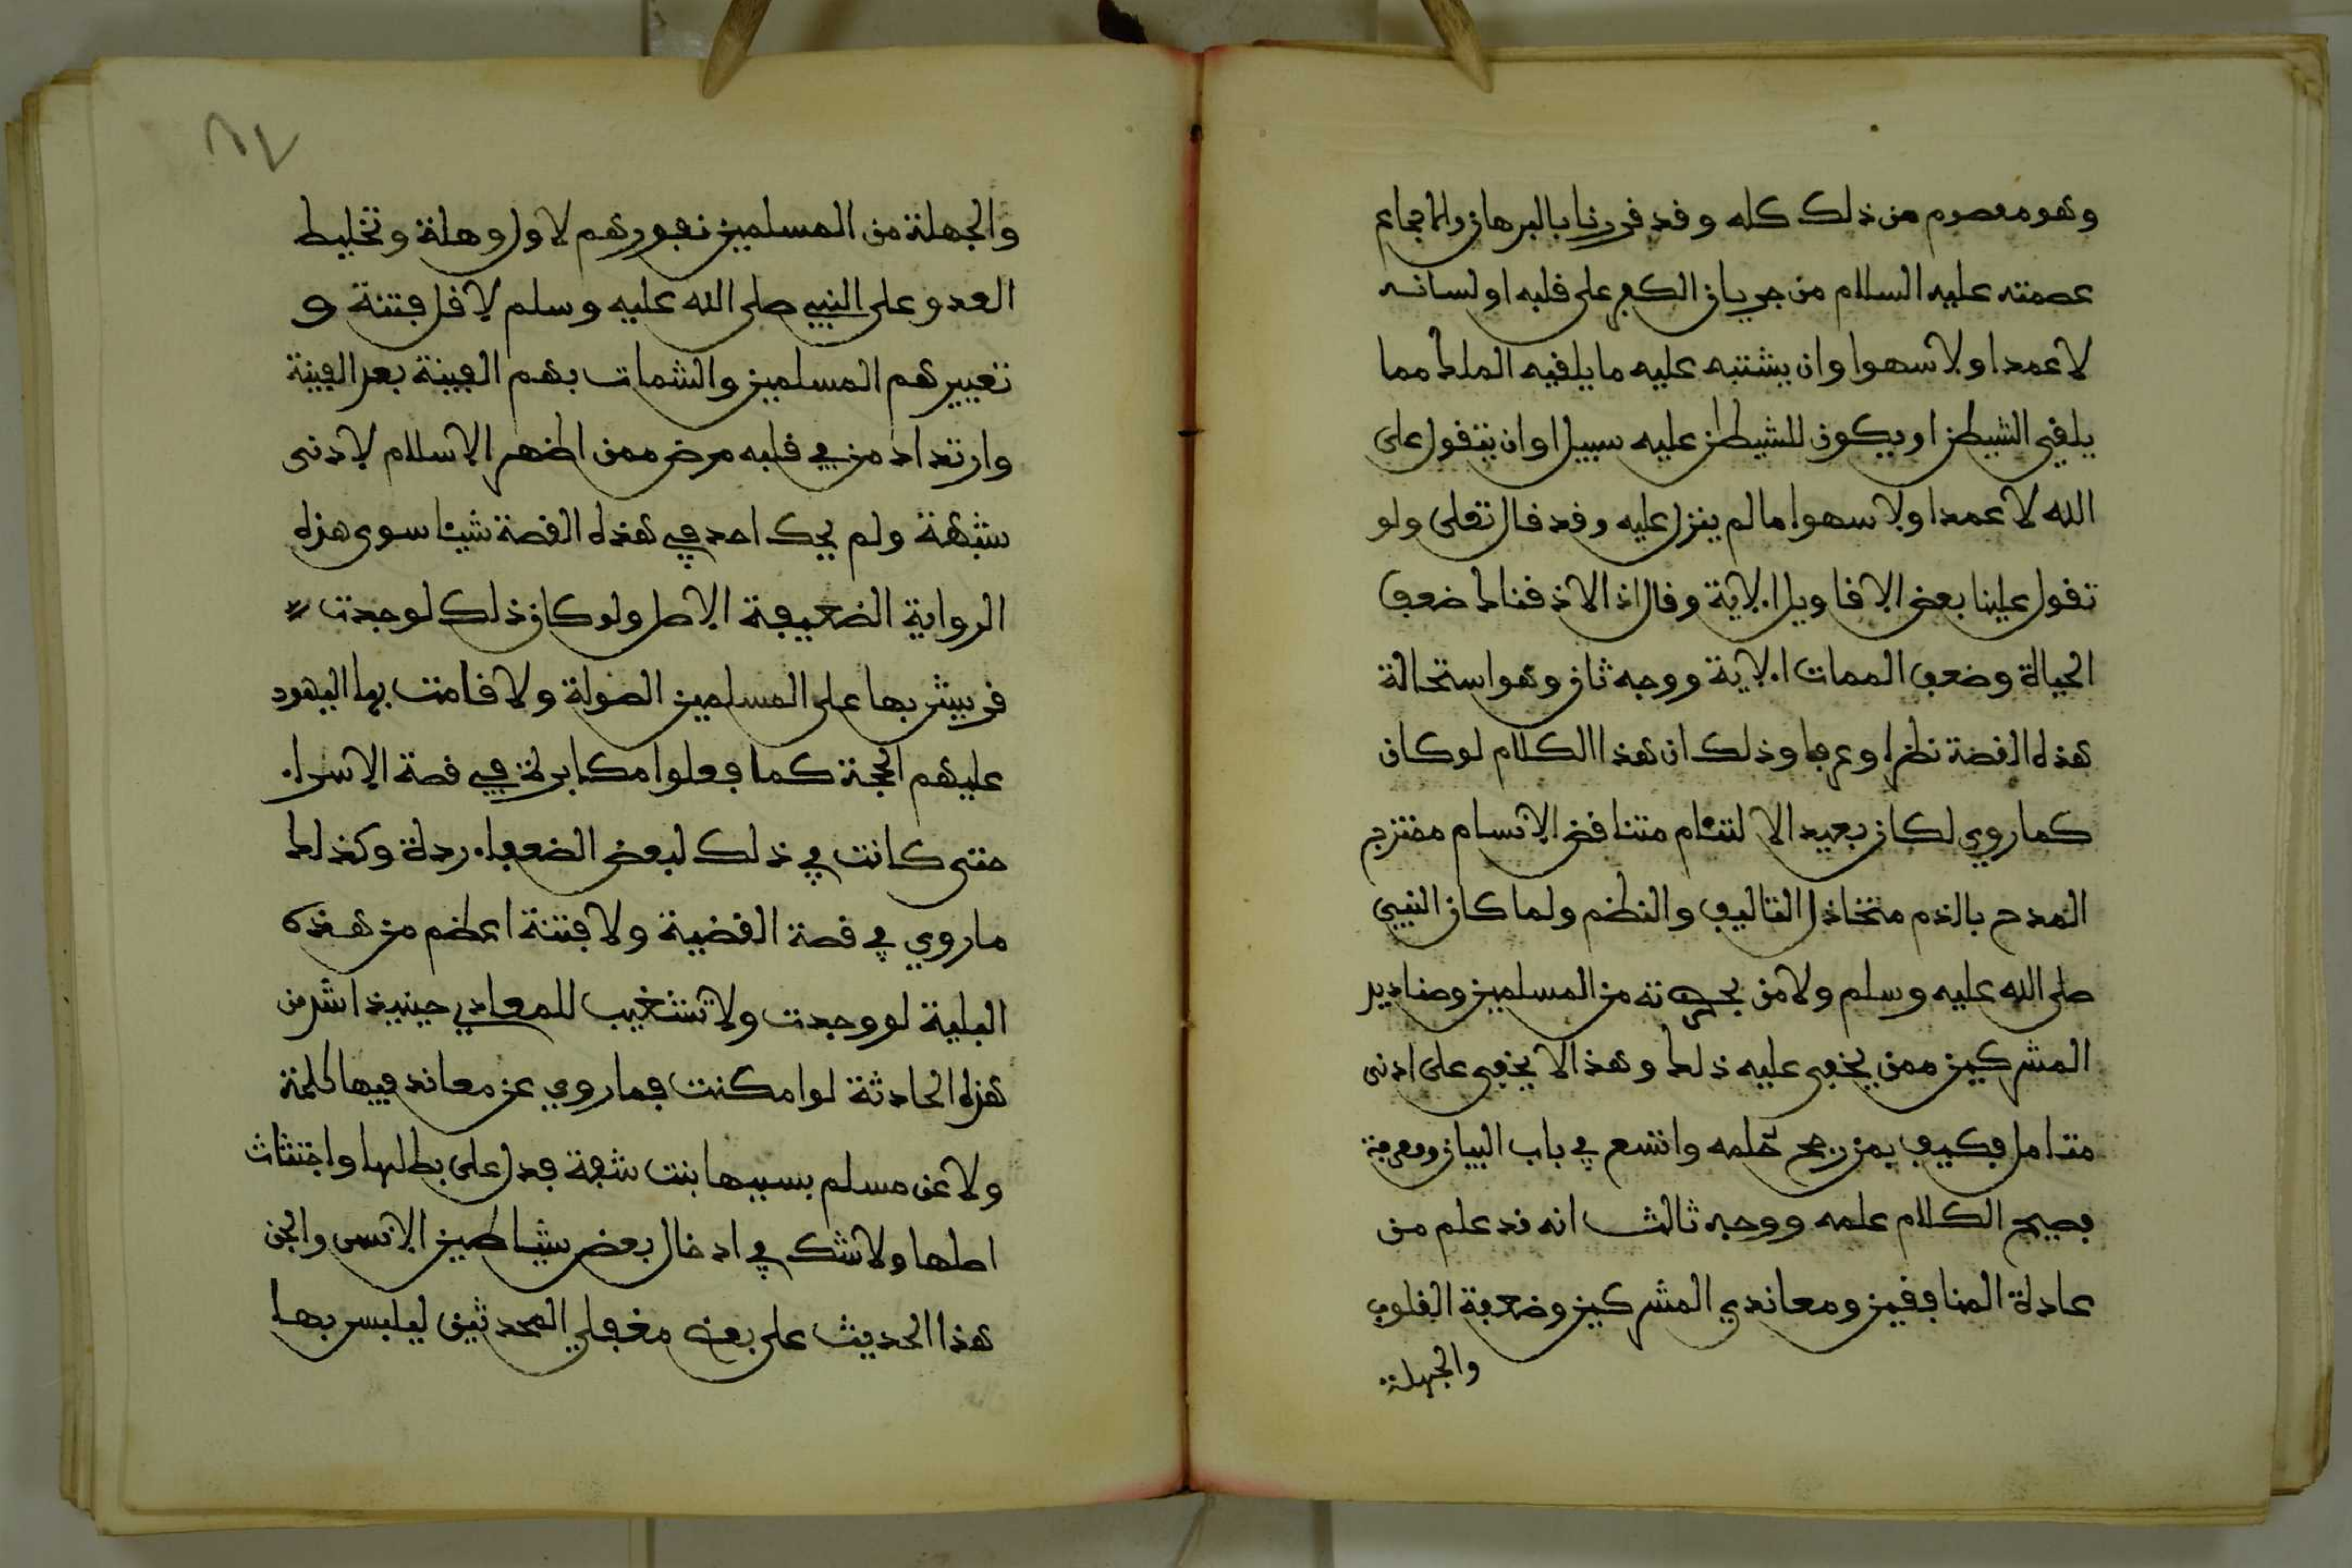 وهو معصوم من ذلك كله وقد قررنا بالبرهان والاجماع
عصمته عليه السلام من جريان الكفر على قلبه او لسانه
لا عمدا ولا سهوا وان يشتبه عليه ما يلقيه الملك مما
يلقي الشيطن او يكون للشيطن عليه سبيل او ان يتقول على
الله لا عمدا ولا سهوا ما لم ينزل عليه وقد قال تعلى ولو
تقول علينا بعض الاقاويل الاية وقال اذا لاذقناك ضعف
الحياة وضعف الممات الاية ووجه ثان وهو استحالة
هذه القصة نظرا وعرفا وذلك ان هذا الكلام لو كان
كما روي لكان بعيد الالتئام متناقض الاقسام ممتزج
المدح بالذم متخاذل التاليف والنظم ولما كان النبي
صلى الله عليه وسلم ولا من بحضرته من المسلمين وصناديد
المشركين ممن يخفى عليه ذلك وهذا لا يخفى على ادنى
متامل فكيف بمن رجح حلمه واتسع في باب البيان ومعرفة
فصيح الكلام علمه ووجه ثالث انه قد علم من
عادة المنافقين ومعاندي المشركين وضعفة القلوب
والجهلة
٨٧
والجهلة من المسلمين نفورهم لاول وهلة وتخليط
العدو على النبي صلى الله عليه وسلم لاقل فتنة و
تعييرهم المسلمين والشمات بهم الفينة بعد الفينة
وارتداد من في قلبه مرض ممن اظهر الاسلام لادنى
شبهة ولم يحك احد في هذه القصة شيئا سوى هذه
الرواية الضعيفة الاصل ولو كان ذلك لوجدت
قريش بها على المسلمين الصولة ولاقامت بها اليهود
عليهم الحجة كما فعلوا مكابرة في قصة الاسراء
حتى كانت في ذلك لبعض الضعفاء ردة وكذلك
ما روي في قصة القضية ولا فتنة اعظم من هذه
البلية لو وجدت ولا تشغيب للمعادي حينيذ اشد من
هذه الحادثة لو امكنت فما روي عن معاند فيها كلمة
ولا عن مسلم بسببها بنت شفة فدل على بطلها واجتثاث
اصلها ولا شك في ادخال بعض شياطين الانس والجن
هذا الحديث على بعض مغفلي المحدثين ليلبس بها